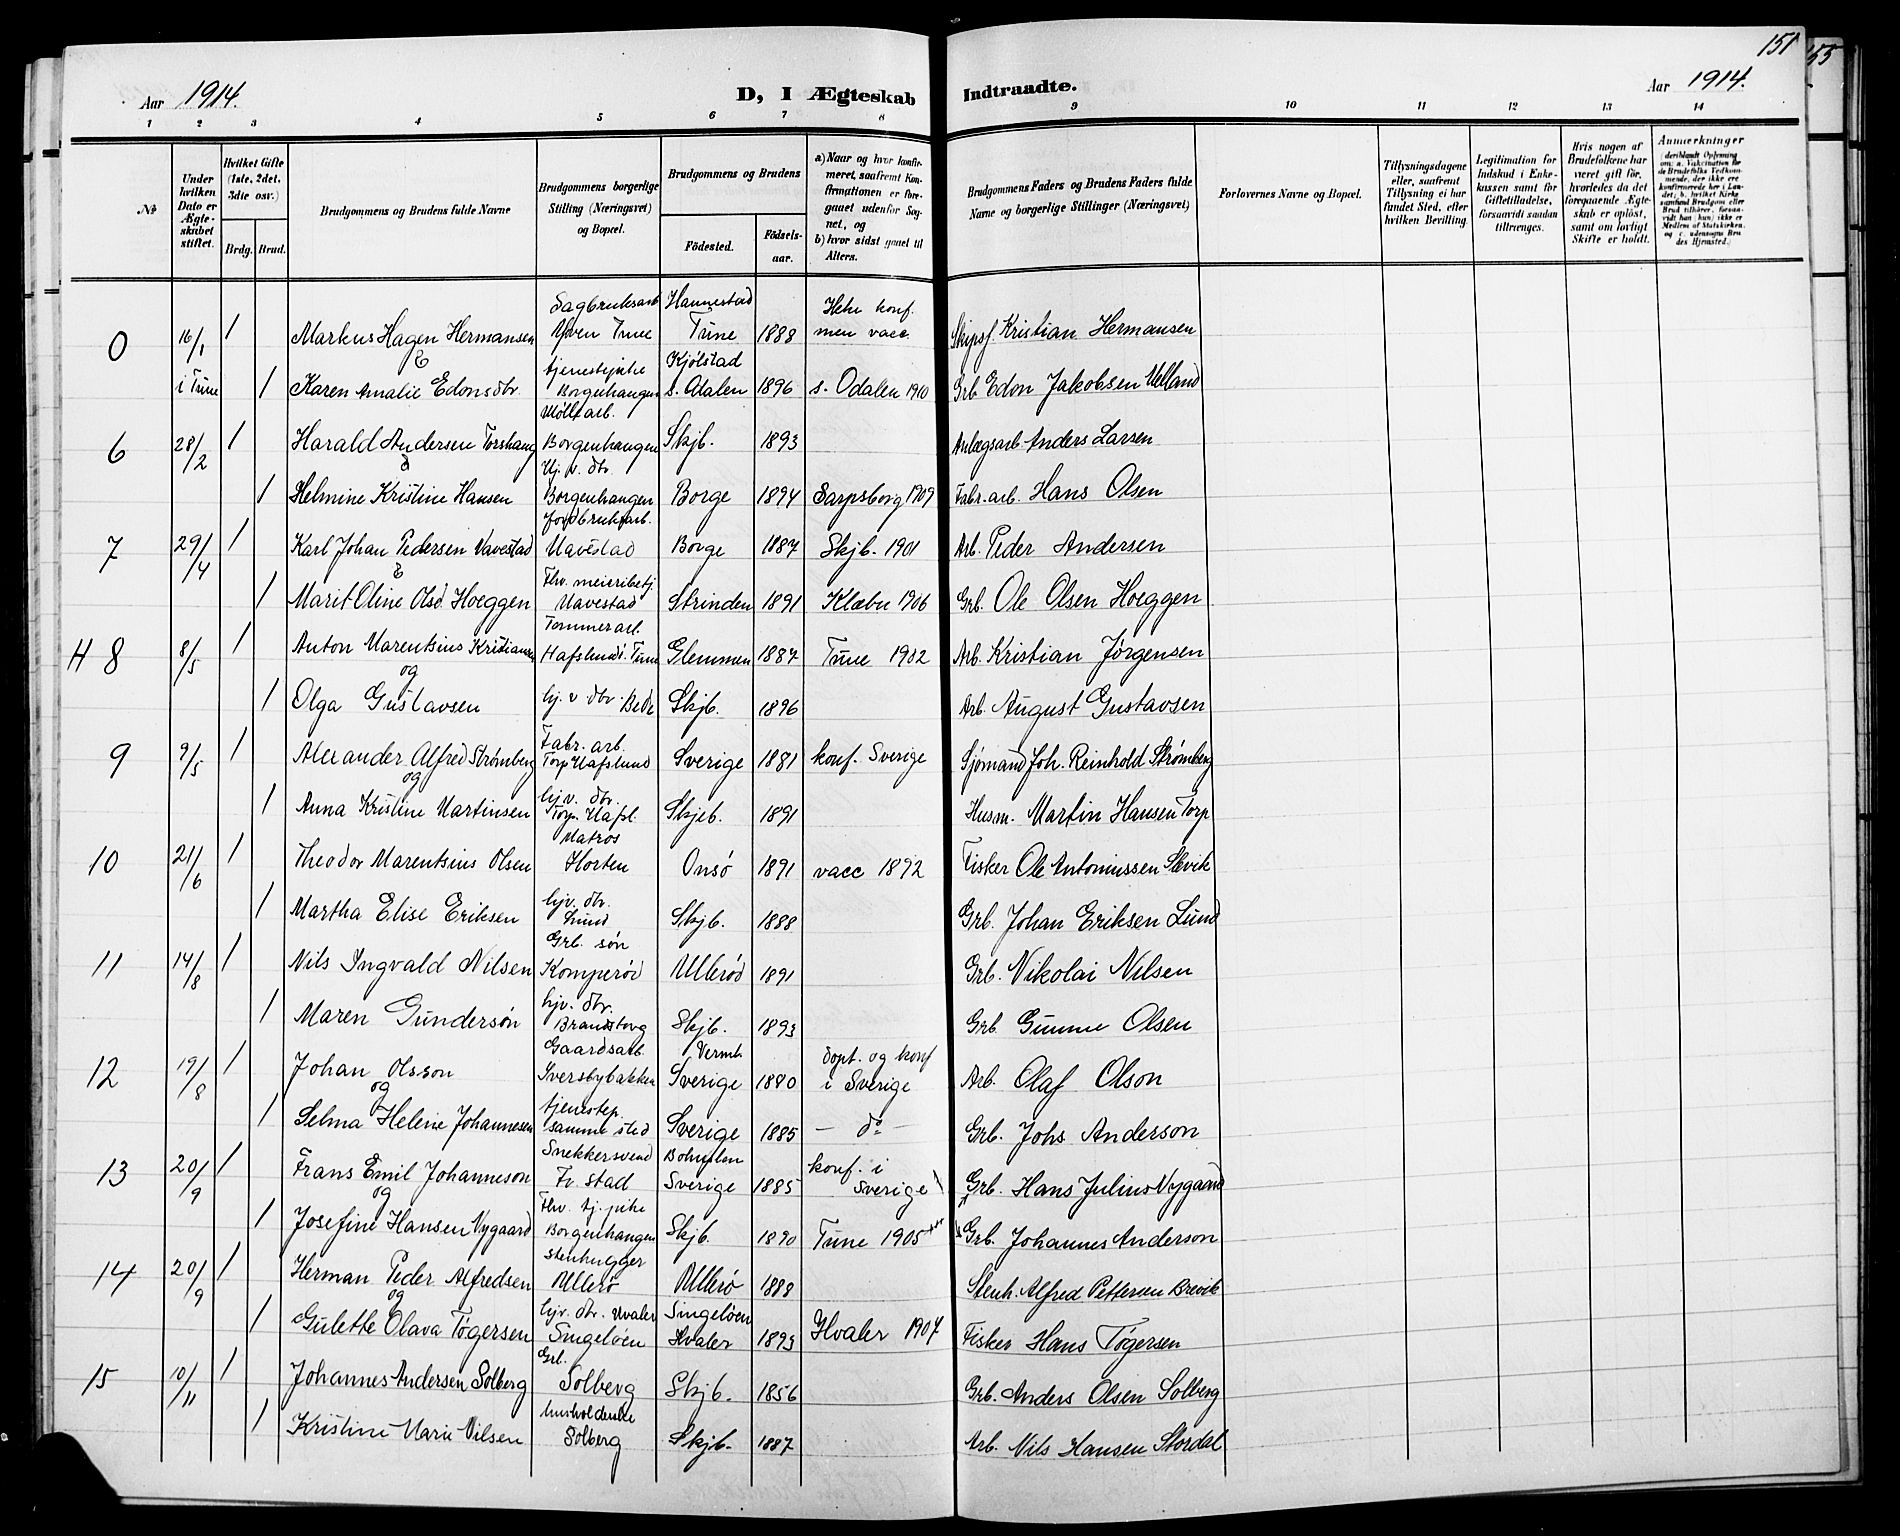 151
155
Aar 1914.
D, I Ægteskab Indtraadte.
Aar 1914.
1 2 3 4 5 6 7 8 9 10 11 12 13 14
No
Under hvilken Dato er Ægteskabet stiftet.
Hvilket Gifte (1ste, 2det, 3die osv.)
Brdg. Brud.
Brudgommens og Brudens fulde Navne
Brudgommens borgerlige Stilling (Næringsvei) og Bopæl.
Brudgommens og Brudens
Fødested. Fødsels-aar.
a) Naar og hvor konfirmeret, saafremt Konfirmationen er foregaaet udenfor Sognet, og
b) hvor sidst gaaet til Alters.
Brudgommens Faders og Brudens Faders fulde Navne og borgerlige Stillinger (Næringsvei)
Forlovernes Navne og Bopæl.
Tillysningsdagene eller, saafremt Tillysning ei har fundet Sted, efter hvilken Bevilling.
Legitimation for Indskud i Enkekassen samt for Giftetilladelse, forsaavidt saadan tiltrænges.
Hvis nogen af Brudefolkene har været gift før, hvorledes da det foregaaende Ægteskab er opløst, samt om lovligt Skifte er holdt.
Anmærkninger
Sagbruksarb Hannestad Ikke konf.
0 16/1 1 Markus Hagen Hermansen Yven Tune Tune 1888 men vacc Skipsf. Kristian Hermansen
&
tjenestepike Kjølstad
i Tune 1 Karen Amalie Edonsdtr. Borgenhaugen s. Odalen 1896 s. Odalen 1910 Grb Edon Jakobsen Ulland
Møllearb.
6 28/2 1 Harald Andersen Torshaug Borgenhaugen Skjb. 1893 Anlægsarb Anders Larsen
&
Hj. v. dtr.
1 Helmine Kristine Hansen Borgenhaugen Borge 1894 Sarpsborg 1909 Fabr. arb. Hans Olsen
Jordbruksarb.
7 29/4 1 Karl Johan Pedersen Navestad Navestad Borge 1887 Skjb. 1901 Arb. Peder Andersen
&
Fhv. meieribetj.
1 Marit Oline Olsd Hoeggen Navestad Strinden 1891 Klæbu 1906 Grb. Ole Olsen Hoeggen
Tømmerarb.
H 8 8/5 1 Anton Marentsius Kristiansen Hafslund i Tune Glemmen 1887 Tune 1902 Arb. Kristian Jørgensen
og
1 Olga Gustavsen hj. v dtr. Bede Skjb. 1896 Arb. August Gustavsen
Fabr. arb.
9 9/5 1 Alexander Alfred Strømberg Torp Hafslund Sverige 1881 konf. Sverige Sjømand Joh. Reinhold Strømberg
og
hj v. dtr.
1 Anna Kristine Martinsen Torp. Hafsl. Skjeb. 1891 Husm. Martin Hansen Torp
Matros
10 21/6 1 Theodor Marentsius Olsen Horten Onsø 1891 vacc 1892 Fisker Ole Antoniussen Slevik
hjv. dtr.
1 Martha Elise Eriksen Lund Skjb. 1888 Grb. Johan Eriksen Lund
Grb. søn
11 14/8 1 Nils Ingvald Nilsen Komperød Ullerød 1891 Grb. Nikolai Nilsen
hjv. dtr.
1 Maren Gundersøn Brandstorg Skjb. 1893 Grb. Gunne Olsen
Gaardsarb. Verml. døpt. og konf
12 19/8 1 Johan Olsson Iversbybakken Sverige 1880 i Sverige Arb. Olaf Olson
og
tjenestep.
1 Selma Helene Johannesen samme sted Sverige 1885 — do — Grb. Johs Anderson
Snekkersvend Bohuslen konf. i
13 20/9 1 Frans Emil Johanneson Fr. stad Sverige 1885 Sverige Grb. Hans Julius Nygaard
og
Fhv. tj. pike
1 Josefine Hansen Nygaard Borgenhaugen Skjb. 1890 Tune 1905 Grb. Johannes Anderson
Stenhugger
14 20/9 1 Herman Peder Alfredsen Ullerø Ullerø 1888 Stenh. Alfred Pettersen Brevik
og
hjv. dtr. Hvaler Singeløen
1 Gulette Olava Tøgersen Singeløen Hvaler 1893 Hvaler 1907 Fisker Hans Tøgersen
Grb.
15 10/11 1 Johannes Andersen Solberg Solberg Skjb. 1856 Grb. Anders Olsen Solberg
husholderske
1 Kristine Marie Nilsen Solberg Skjb. 1887 Arb. Nils Hansen Stordal